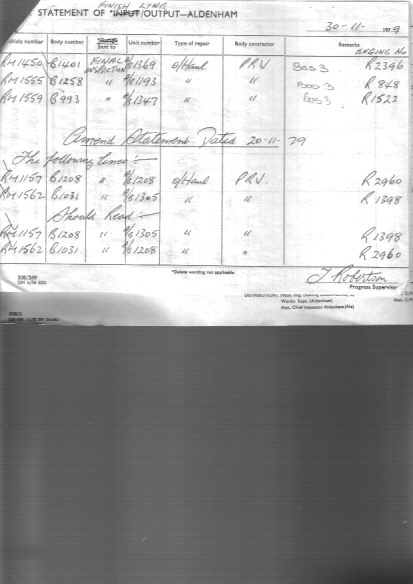 FINISH LINE
STATEMENT OF *INPUT/OUTPUT—ALDENHAM
30-11- 1979
Body number Sent to Unit number Type of repair Body contractor Remarks
ENGINE No
RM1450 B1401 FINAL INSPECTION 1369 O/Haul PRV R2396
RM1555 B1258 " 1193 " " R848
RM1559 B993 " 1347 " " R1522
Amend Statement Dated 20-11-79
The following lines:-
RM1157 B1208 " 1208 O/Haul PRV. R2960
RM1562 B1031 " 1305 " " R1398
Should Read:-
RM1157 B1208 " 1305 " " R1398
RM1562 B1031 " 1208 " " R2960
*Delete wording not applicable
T. Robertson
Progress Supervisor
308/249
DISTRIBUTION:
Works Supt. (Aldenham)
Asst. Chief Inspector Aldenham (File)